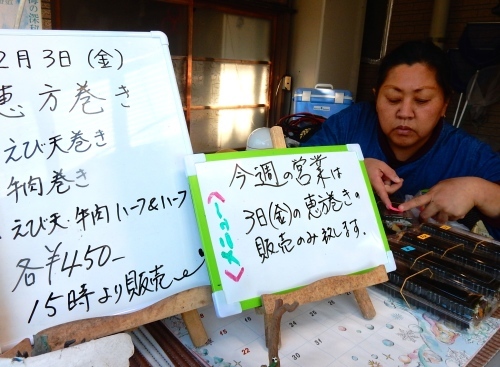 2月3日(金)
恵方巻き
えび天巻き
牛肉巻き
えび天・牛肉ハーフ&ハーフ
各¥450-
15時より販売
今週の営業は
3日(金)の恵方巻き。
販売のみ致します.